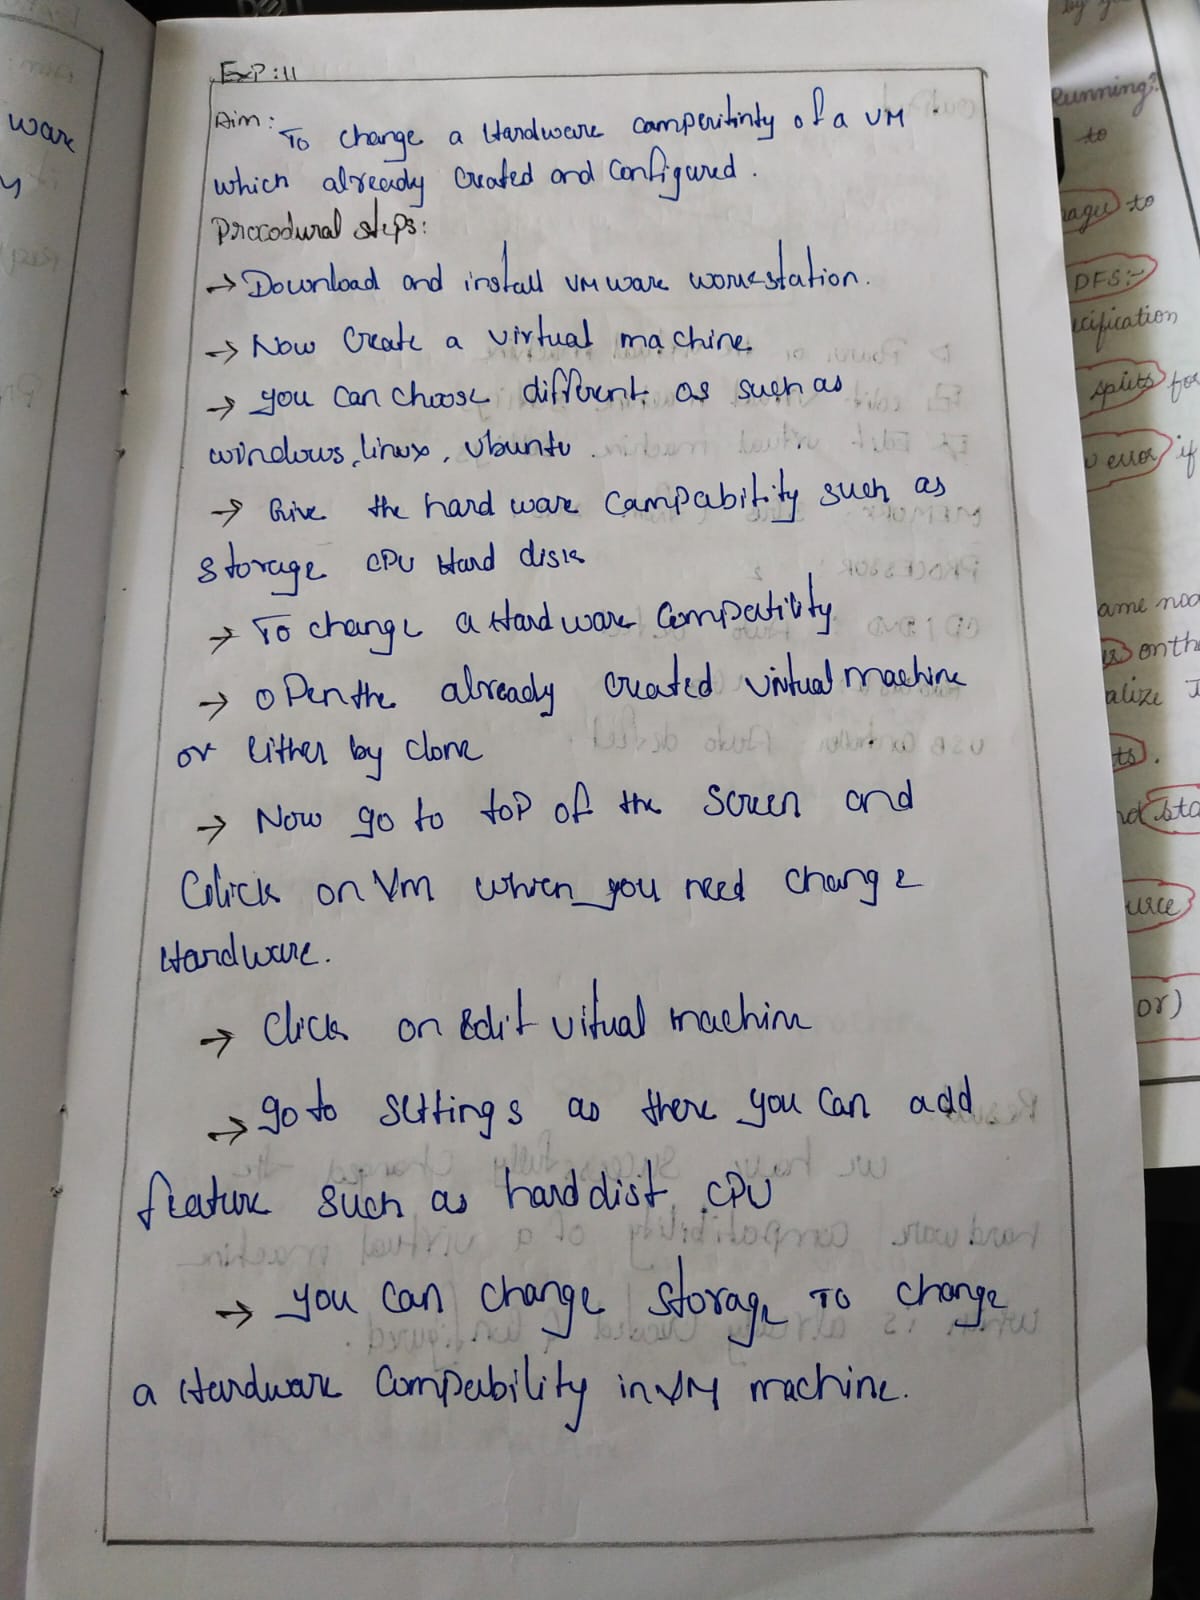 ware
y
Exp:11
Aim: To change a Hardware camperitinty of a VM
which already Created and Configured.
Procodural steps:
→ Download and install VM ware workstation.
→ Now Create a virtual machine.
→ you can choose different os such as
windows, linux, Ubuntu.
→ Give the hard ware Campability such as
storage CPU Hard disk
→ To change a Hardware Compatility
→ open the already created virtual machine
or Either by clone
→ Now go to top of the screen and
Colick on Vm when you need change
Hardware.
→ Click on Edit vitual machine
→ go to settings as there you can add
feature such as hard dist, CPU
→ you can change storage To change
a Hardware Compability in VM machine.
by
Running?
to
to
DFS:-
splits for
error if
ame nod
on the
alize
ts.
nd sta
urce
or)